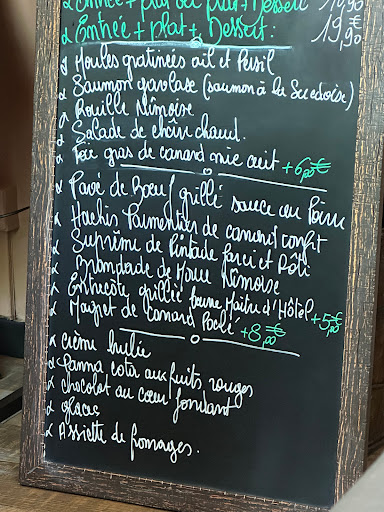 Entrée + plat ou plat + Dessert 14,90
Entrée + plat + Dessert : 19,90
Moules gratinées ail et Persil
Saumon gravelase (saumon à la Suedoise)
Rouille Nimoise
Salade de chèvre chaud.
Foie gras de canard mie cuit +6,00€
Pavé de Boeuf grillé sauce au Poivre
Hachis Parmentier de canard confit
Suprême de Pintade farci et Rôti
Brandade de Morue Nimoise
Entrecôte grillée beurre Maitre d'Hôtel +5,00€
Magret de Canard Poêlé +8,00€
crème brulée
Panna cota aux fruits rouges
chocolat au cœur fondant
glaces
Assiette de fromages.